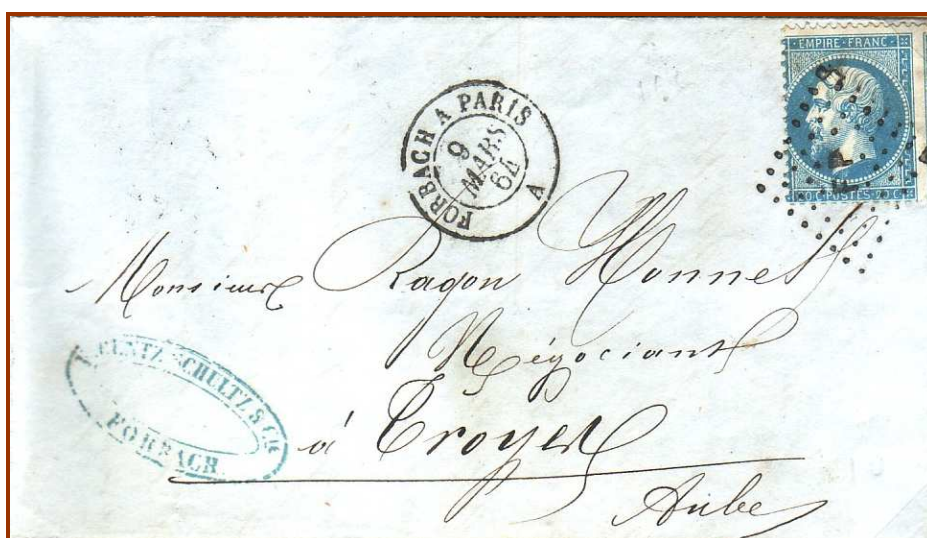 EMPIRE · FRANC ·
20 C · POSTES · 20 C
FORBACH A PARIS
9
MARS
64
A
Monsieur Ragon Monnet
Négociant
à Troyes
Aube
SCHULTZ & CIE
FORBACH